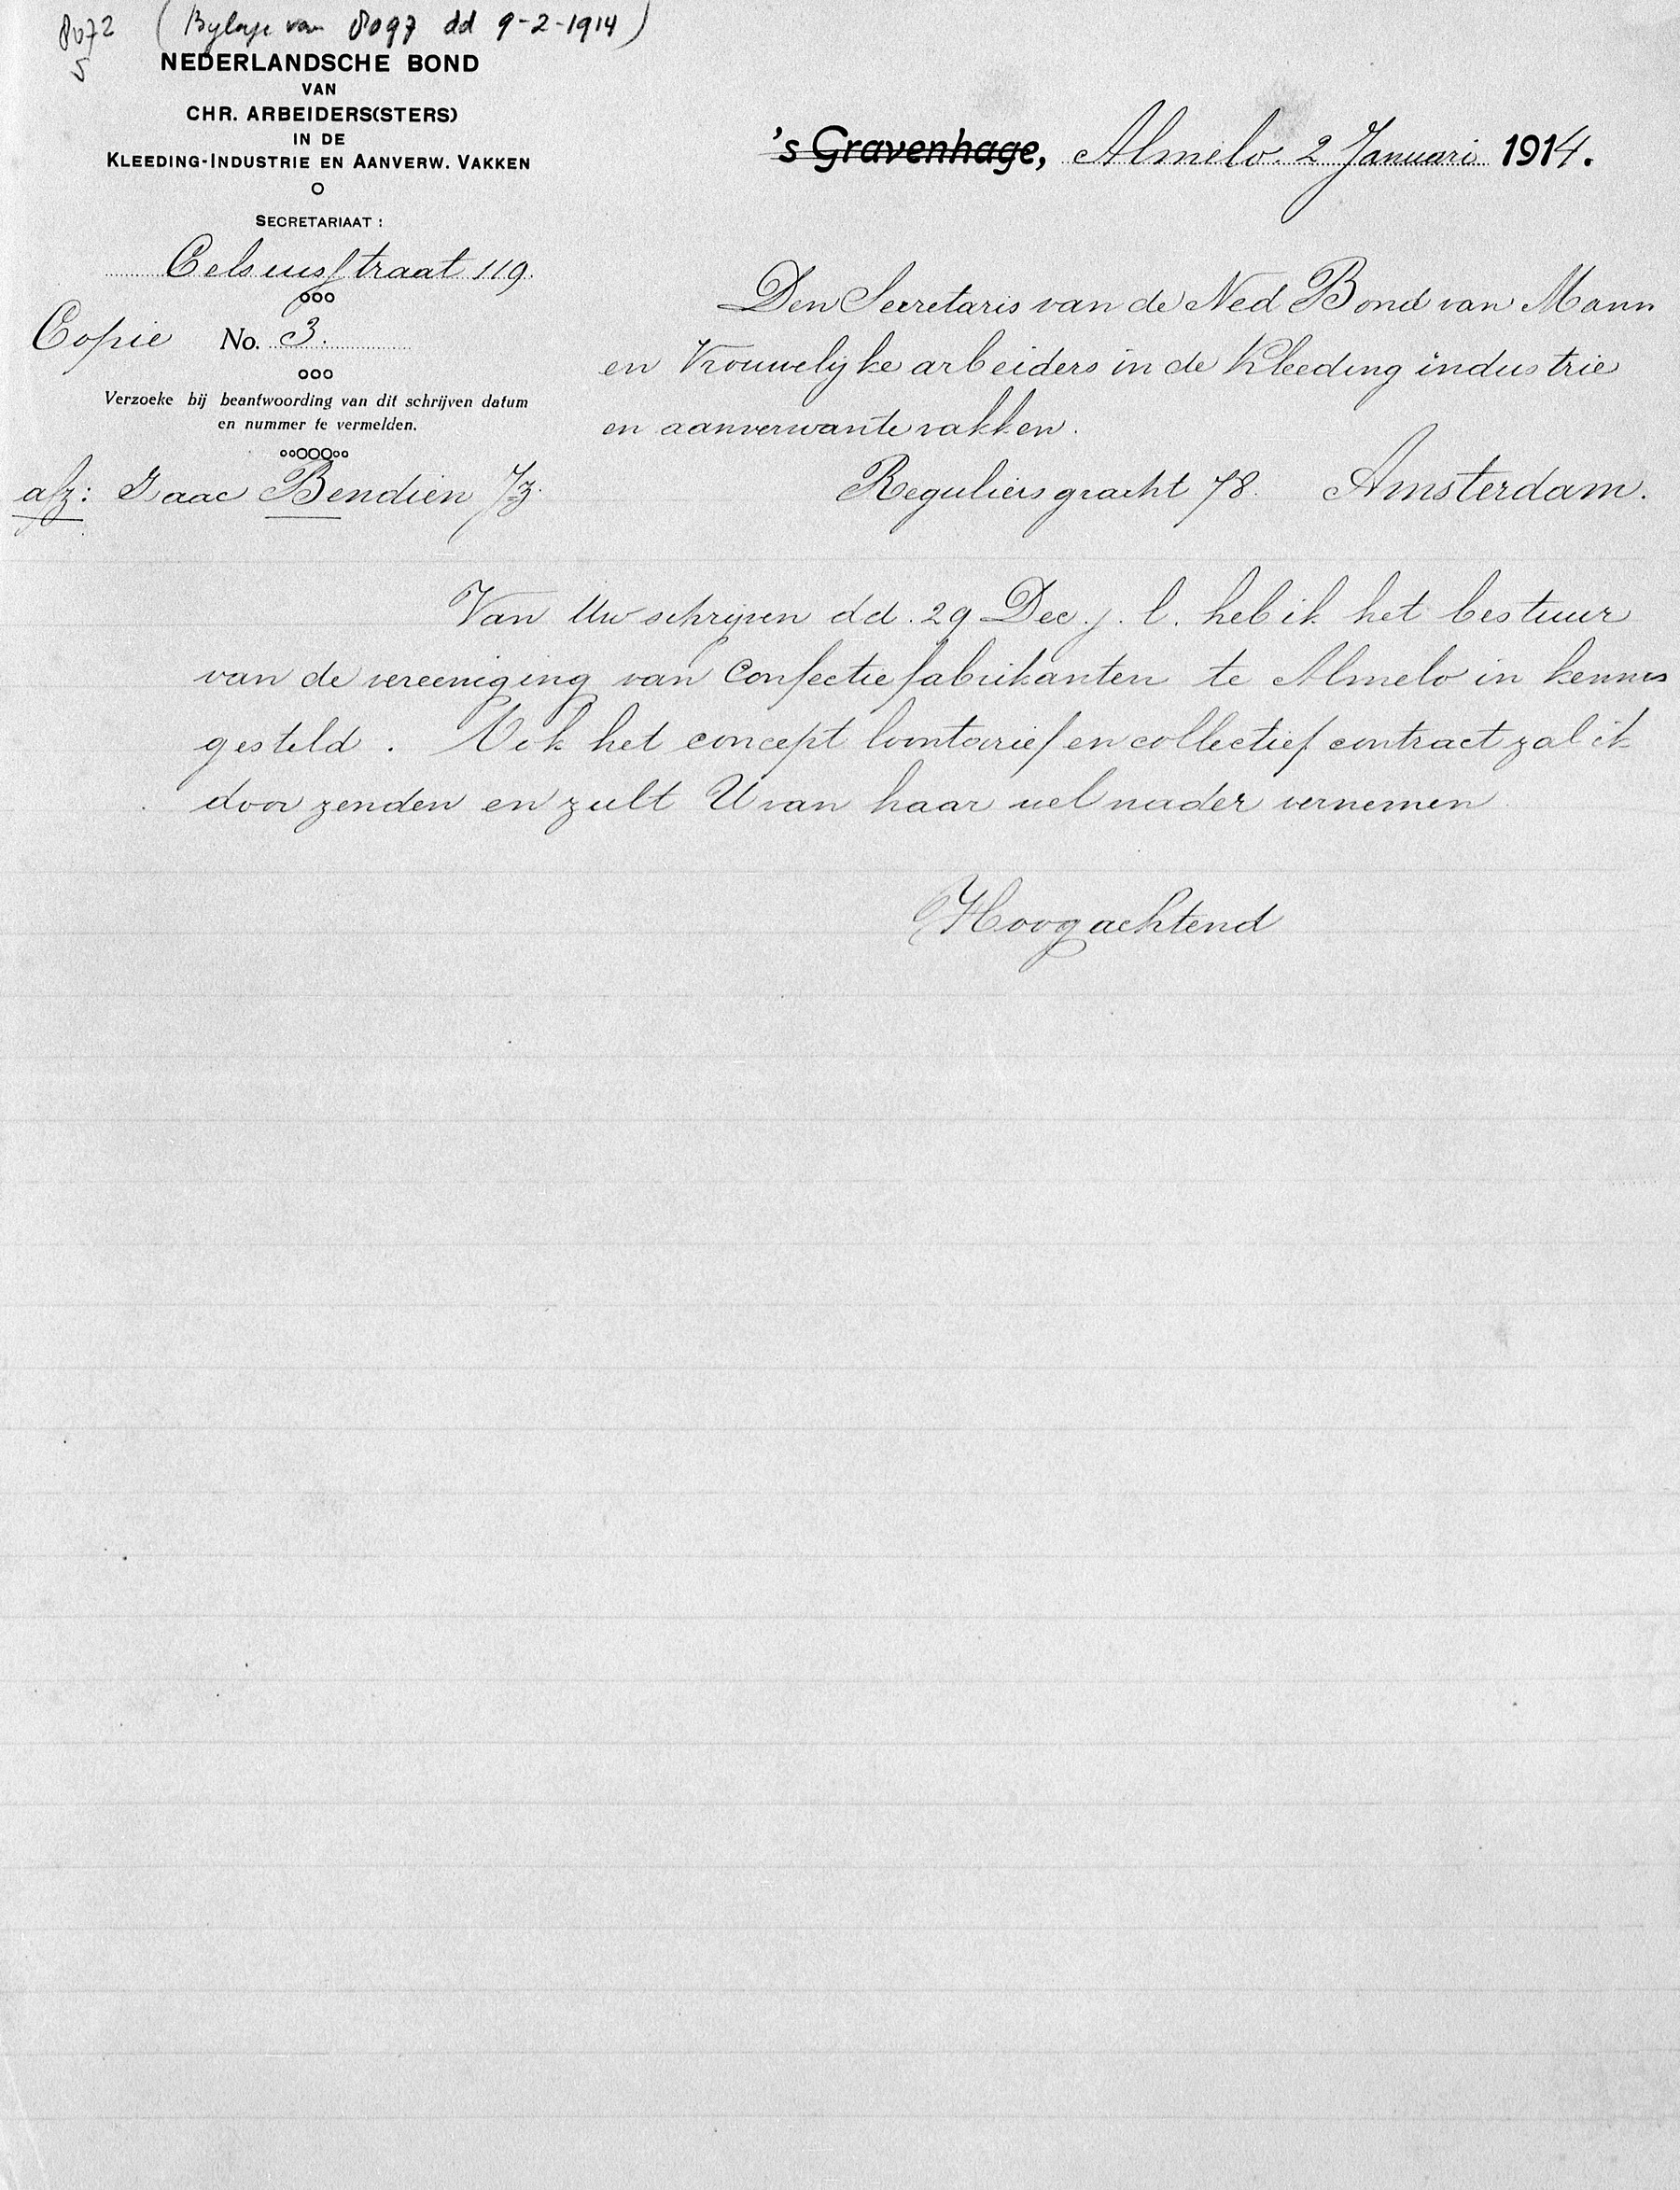 8072 (Bylage van 8097 dd 9-2-1914)
5
NEDERLANDSCHE BOND
VAN
CHR. ARBEIDERS(STERS)
IN DE
KLEEDING-INDUSTRIE EN AANVERW. VAKKEN
SECRETARIAAT:
Celsiusstraat 119.
Copie No. 3.
Verzoeke bij beantwoording van dit schrijven datum
en nummer te vermelden.
afz: Isaac Bendien Jz.
's Gravenhage, Almelo. 2 Januari 1914.
Den Secretaris van de Ned Bond van Mann
en Vrouwelijke arbeiders in de Kleeding industrie
en aanverwante vakken.
Reguliersgracht 78. Amsterdam.
Van Uw schrijven dd. 29 Dec. j. l. heb ik het bestuur
van de vereeniging van Confectiefabrikanten te Almelo in kennis
gesteld. Ook het concept loontarief en collectief contract zal ik
door zenden en zult U van haar wel nader vernemen
Hoogachtend